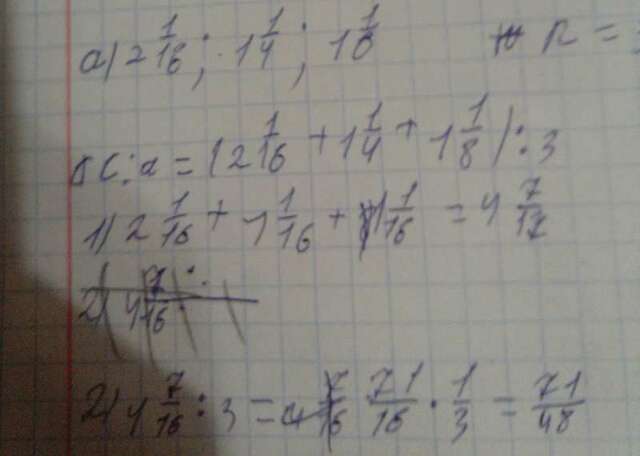 а) 2 1/16; 1 1/4; 1 1/8 n =
с.а = (2 1/16 + 1 1/4 + 1 1/8) : 3
1) 2 1/16 + 1 1/16 + 1 1/16 = 4 7/12
2) 4 7/16 :
2) 4 7/16 : 3 = 4 7/16 71/16 · 1/3 = 71/48